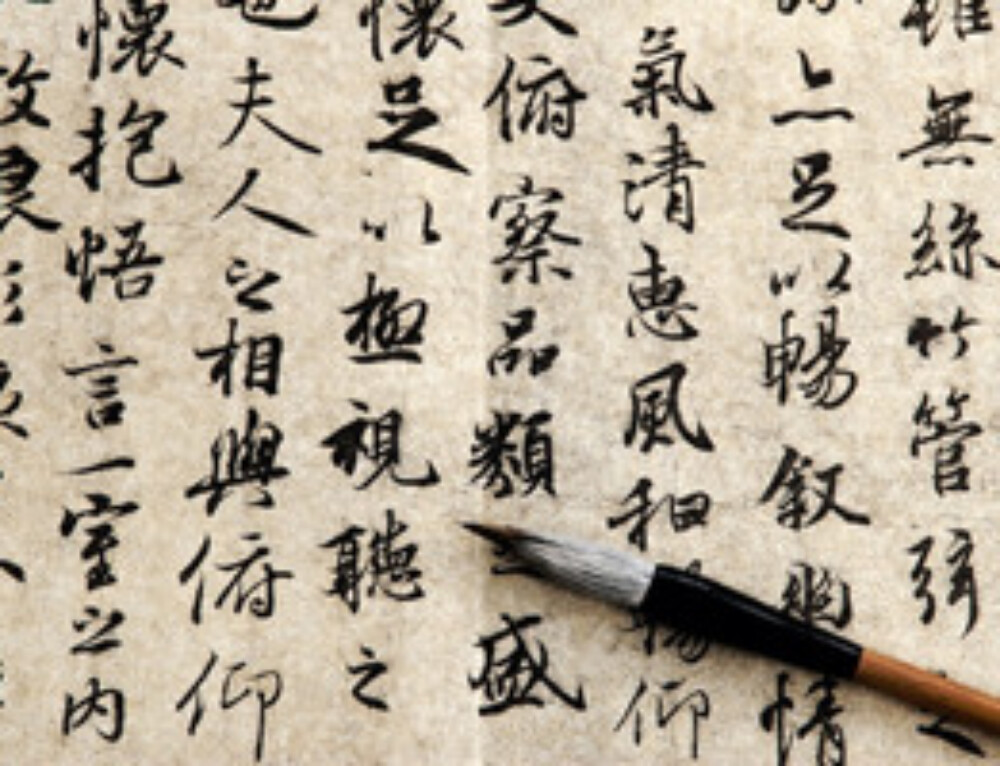 雖無絲竹管弦之
亦足以暢叙幽情
氣清惠風和暢仰
俯察品類之盛
懷足以極視聽之
也夫人之相與俯仰
懷抱悟言一室之內